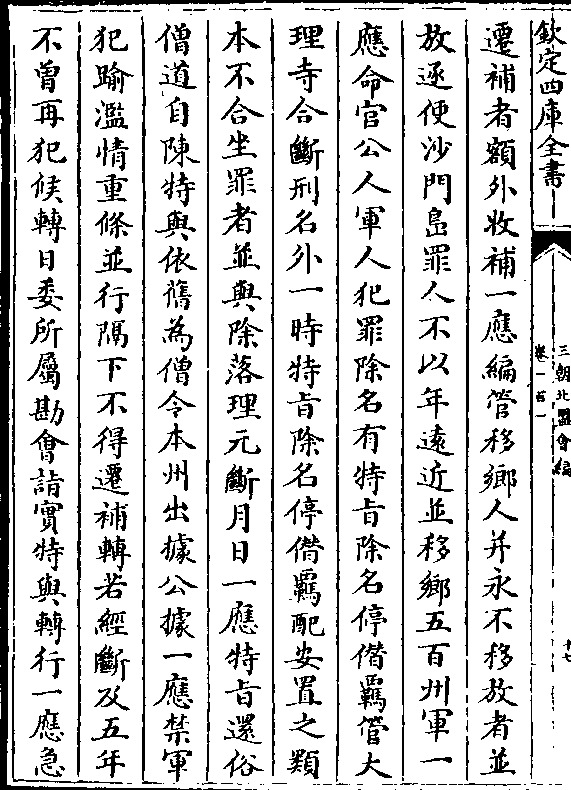 欽定四庫全書
三朝北盟會編
卷一百一
十七
遷補者額外收補一應編管移鄉人并永不移放者並
放逐便沙門島罪人不以年遠近並移鄉五百州軍一
應命官公人軍人犯罪除名有特旨除名停僭羈管大
理寺合斷刑名外一時特旨除名停僭羈配安置之類
本不合坐罪者並與除落理元斷月日一應特旨還俗
僧道自陳特與依舊為僧令本州出據公據一應禁軍
犯踰濫情重條並行隔下不得遷補轉若經斷及五年
不曾再犯候轉日委所屬勘會詣實特與轉行一應急